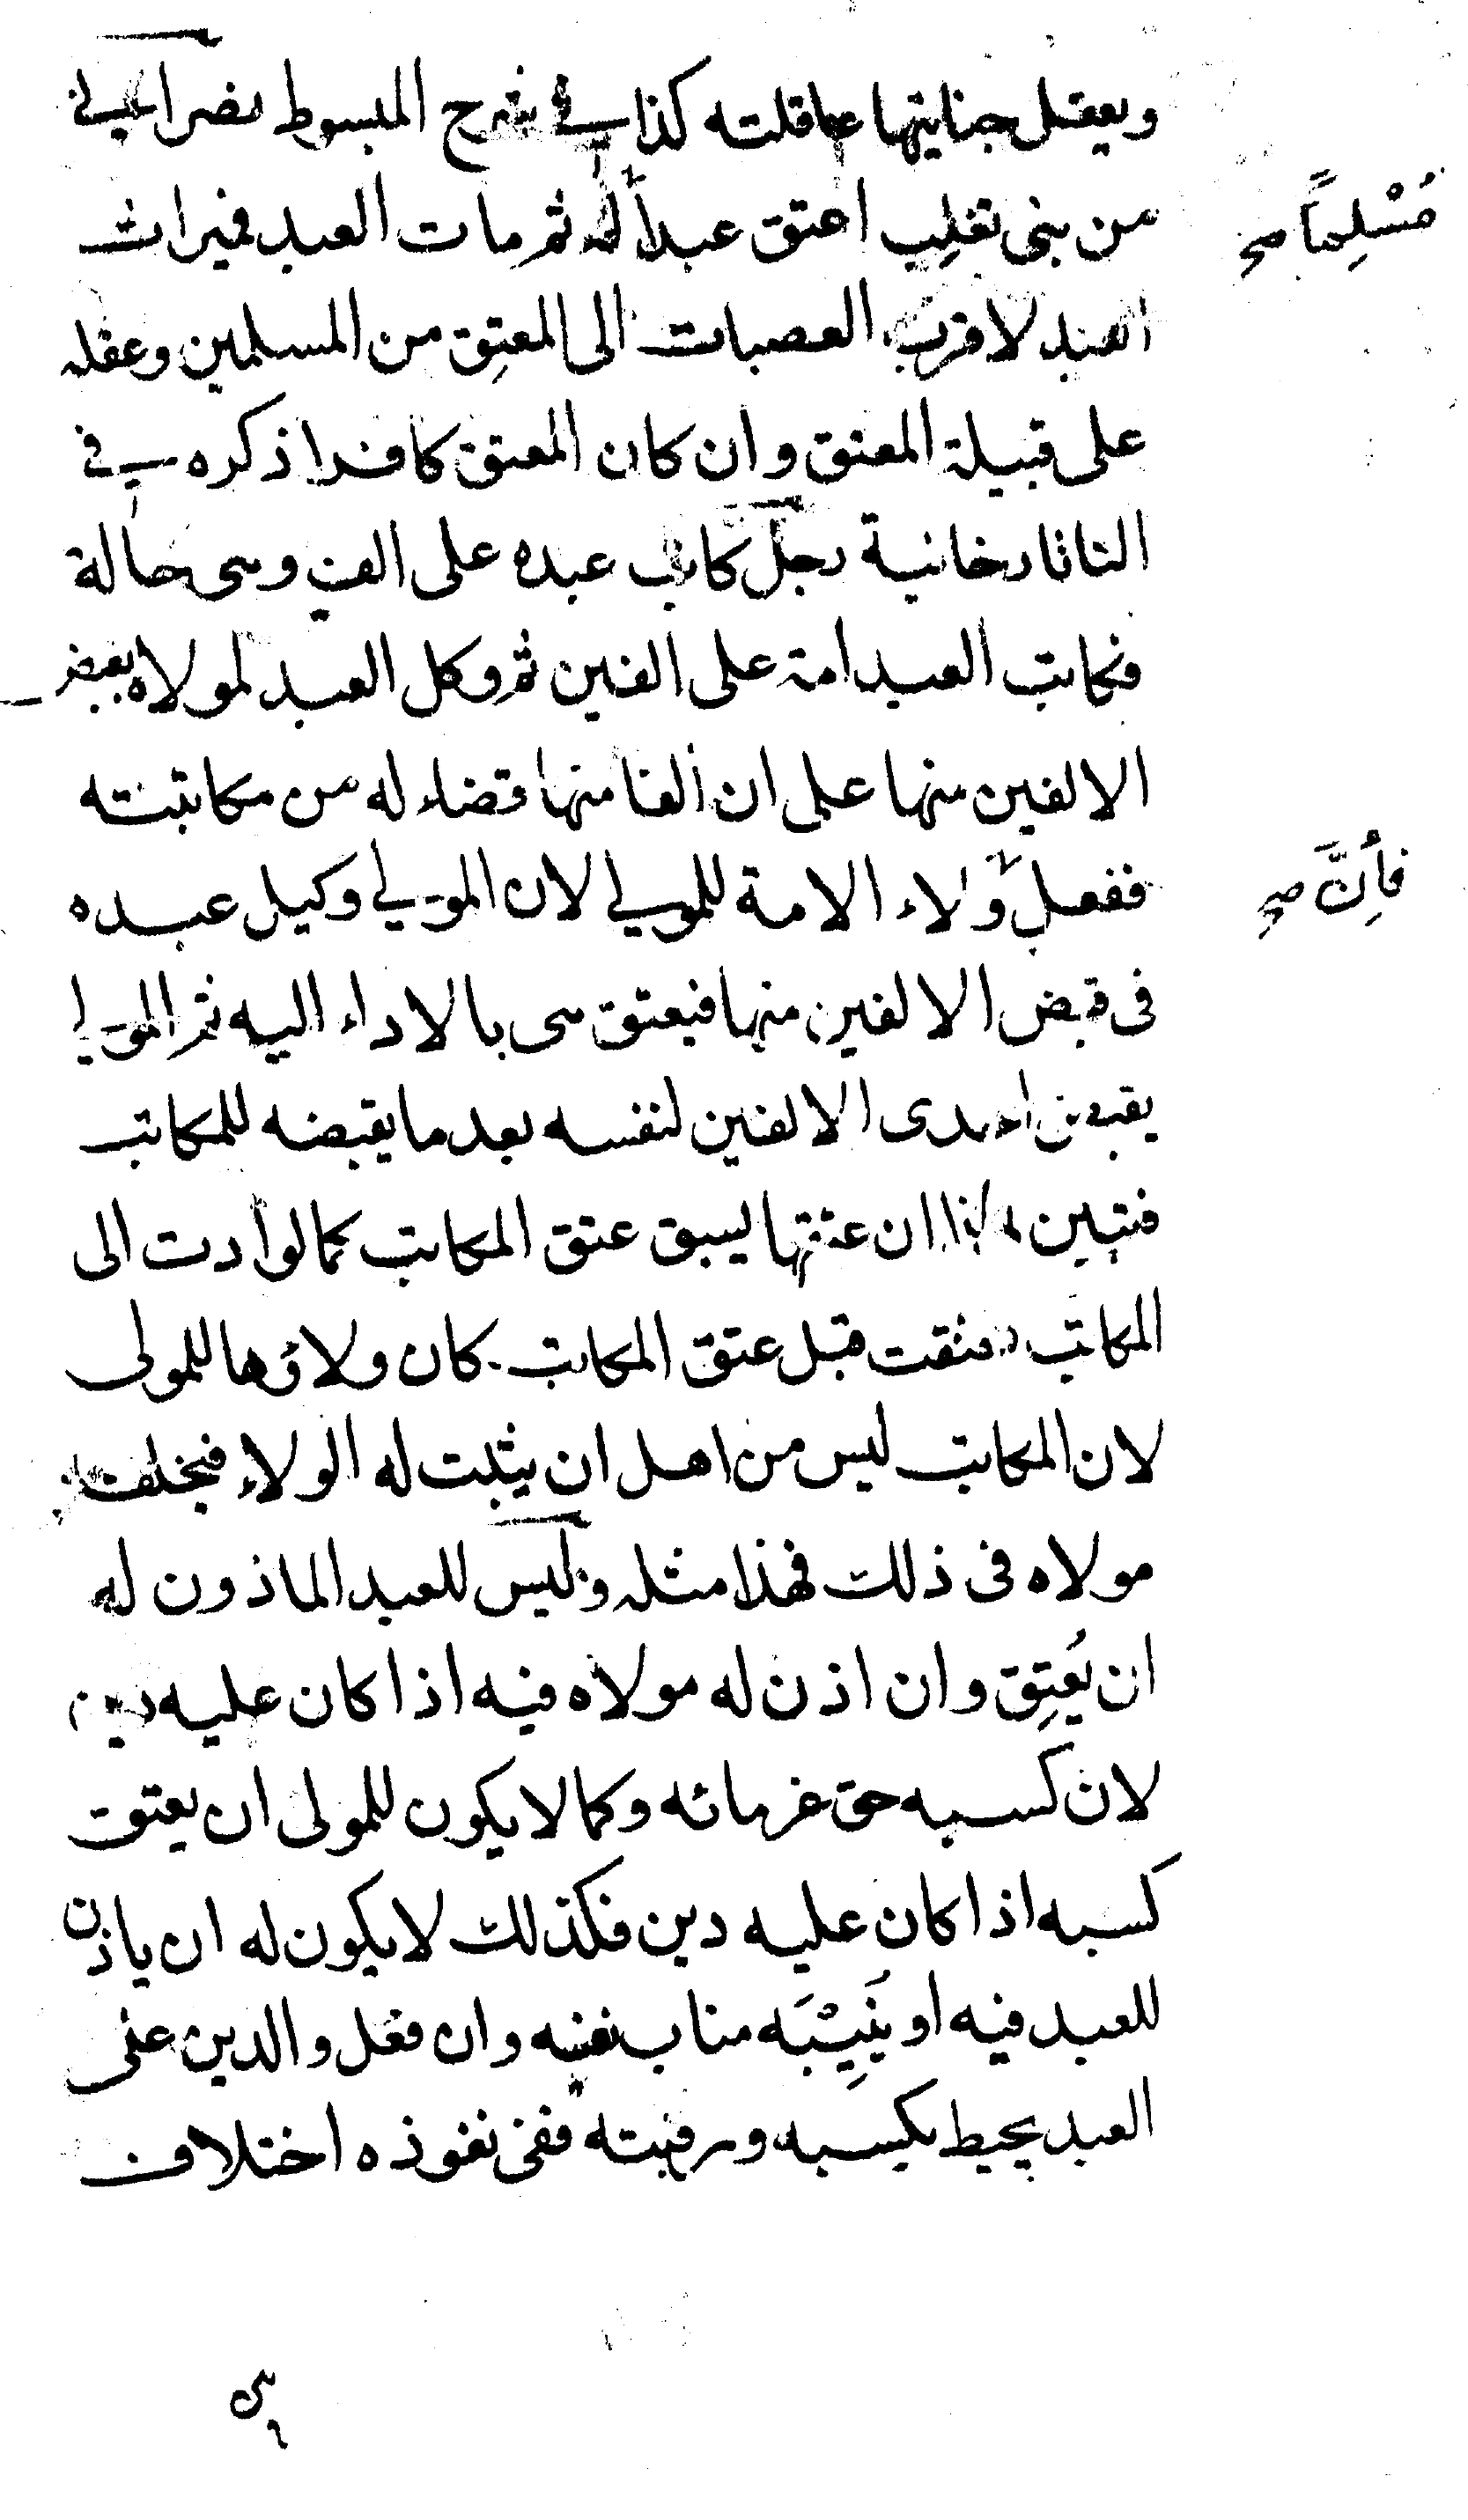 ويعقل جنايتها عاقلته كذا في شرح المبسوط نصراني
من بنى تغلِب اعتق عبداً له ثم مات العبد فميراث
مُسْلِماً صح
العبد لاقرب العصبات الى المعتِق من المسلمين وعقله
على قبيلة المعتق وان كان المعتق كافرا ذكره في
التاتارخانية رجل كاتب عبده على الف وهى حالة
فكاتب العبد امة على الفين ثم وكل العبد لمولاه بقبض
الالفين منها على ان الفا منها قضاء له من مكاتبته
ففعل ولاء الامة للمولى لان المولى وكيل عبده
فإنَّ صح
فى قبض الالفين منها فيعتق هى بالاداء اليه ثم المولى
يقبض احدى الالفين لنفسه بعد ما يقبضه للمكاتب
فتبين بهذا ان عتقها يسبق عتق المكاتب كما لو ادت الى
المكاتب فعتقت قبل عتق المكاتب كان ولاؤها للمولى
لان المكاتب ليس من اهل ان يثبت له الولاء فيخلفه
مولاه فى ذلك فهذا مثله وليس للعبد الماذون له
ان يُعتِق وان اذن له مولاه فيه اذا كان عليه دين
لان كسبه حق غرمائه وكما لا يكون للمولى ان يعتق
كسبه اذا كان عليه دين فكذلك لا يكون له ان ياذن
للعبد فيه او يُنِيْبَه مناب نفسه وان فعل والدين على
العبد يحيط بكسبه ورقبته ففى نفوذه اختلاف